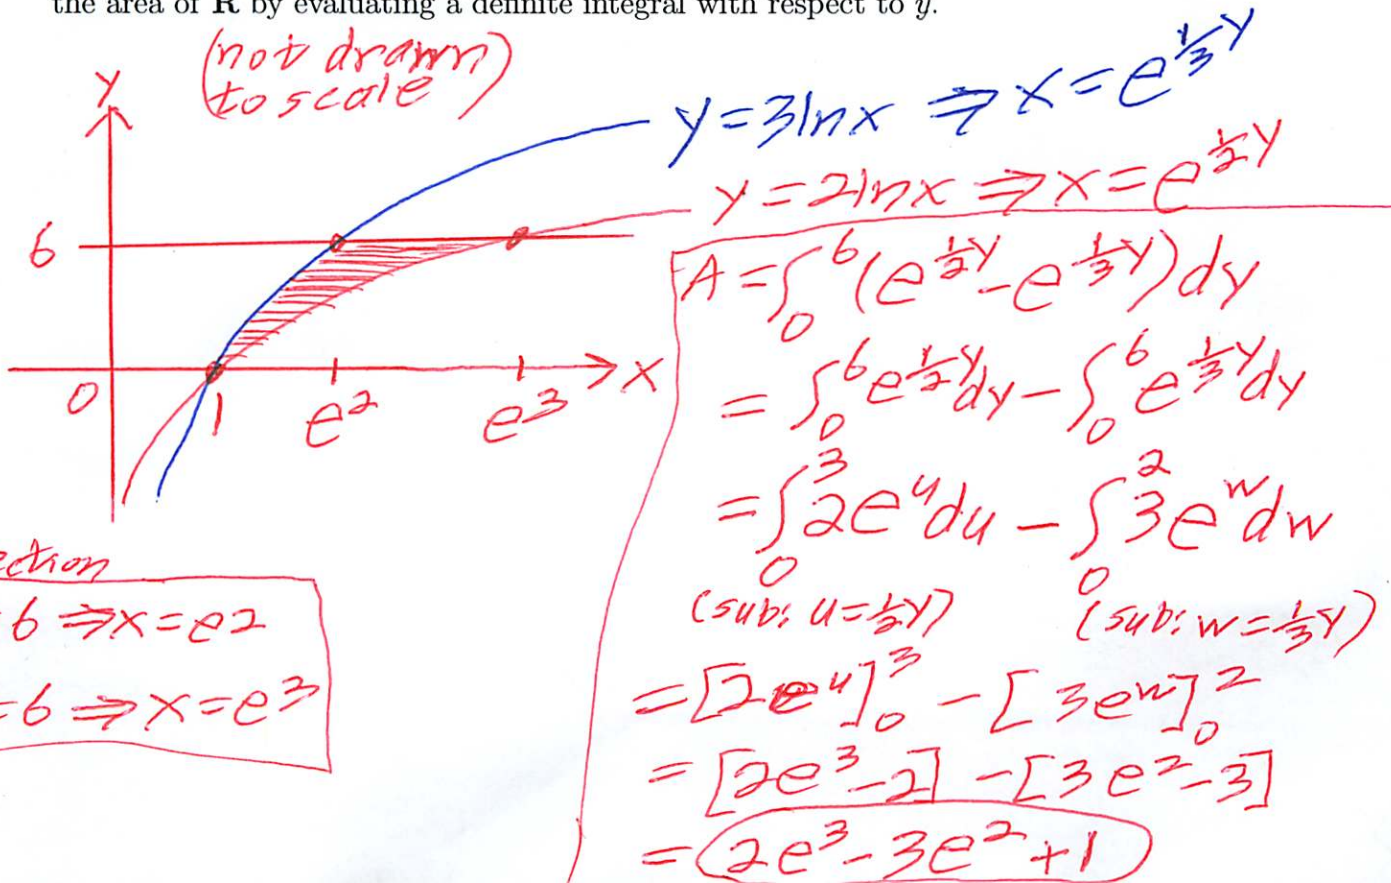 the area of R by evaluating a definite integral with respect to y.
(not drawn to scale)
y
y = 3lnx ⇒ x = e^{1/3 y}
y = 2lnx ⇒ x = e^{1/2 y}
6
0 1 e^2 e^3 x
ection
6 ⇒ x = e2
=6 ⇒ x = e^3
A = ∫_0^6 (e^{1/2 y} - e^{1/3 y}) dy
= ∫_0^6 e^{1/2 y} dy - ∫_0^6 e^{1/3 y} dy
= ∫_0^3 2e^u du - ∫_0^2 3e^w dw
(sub: u = 1/2 y) (sub: w = 1/3 y)
= [2e^u]_0^3 - [3e^w]_0^2
= [2e^3 - 2] - [3e^2 - 3]
= 2e^3 - 3e^2 + 1